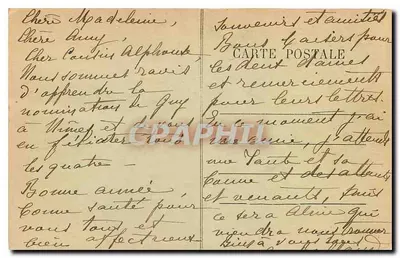 Chère Madeleine,
Chère Amy,
Cher Cousin Alphonse,
Nous sommes ravis
d'apprendre la
nomination de Guy
à Nîmes et nous
en félicitons vous
les quatre —
Bonne année
bonne santé pour
vous tous et
bien affectueux
Souvenirs et amitiés
Bons baisers pour
CARTE POSTALE
les deux dames
et remerciements
pour leurs lettres.
En ce moment j'ai
une amie, j'attends
une Tante et sa
bonne et des allants
et venants, puis
ce sera Aline qui
viendra nous trouver
Bien à vous tous